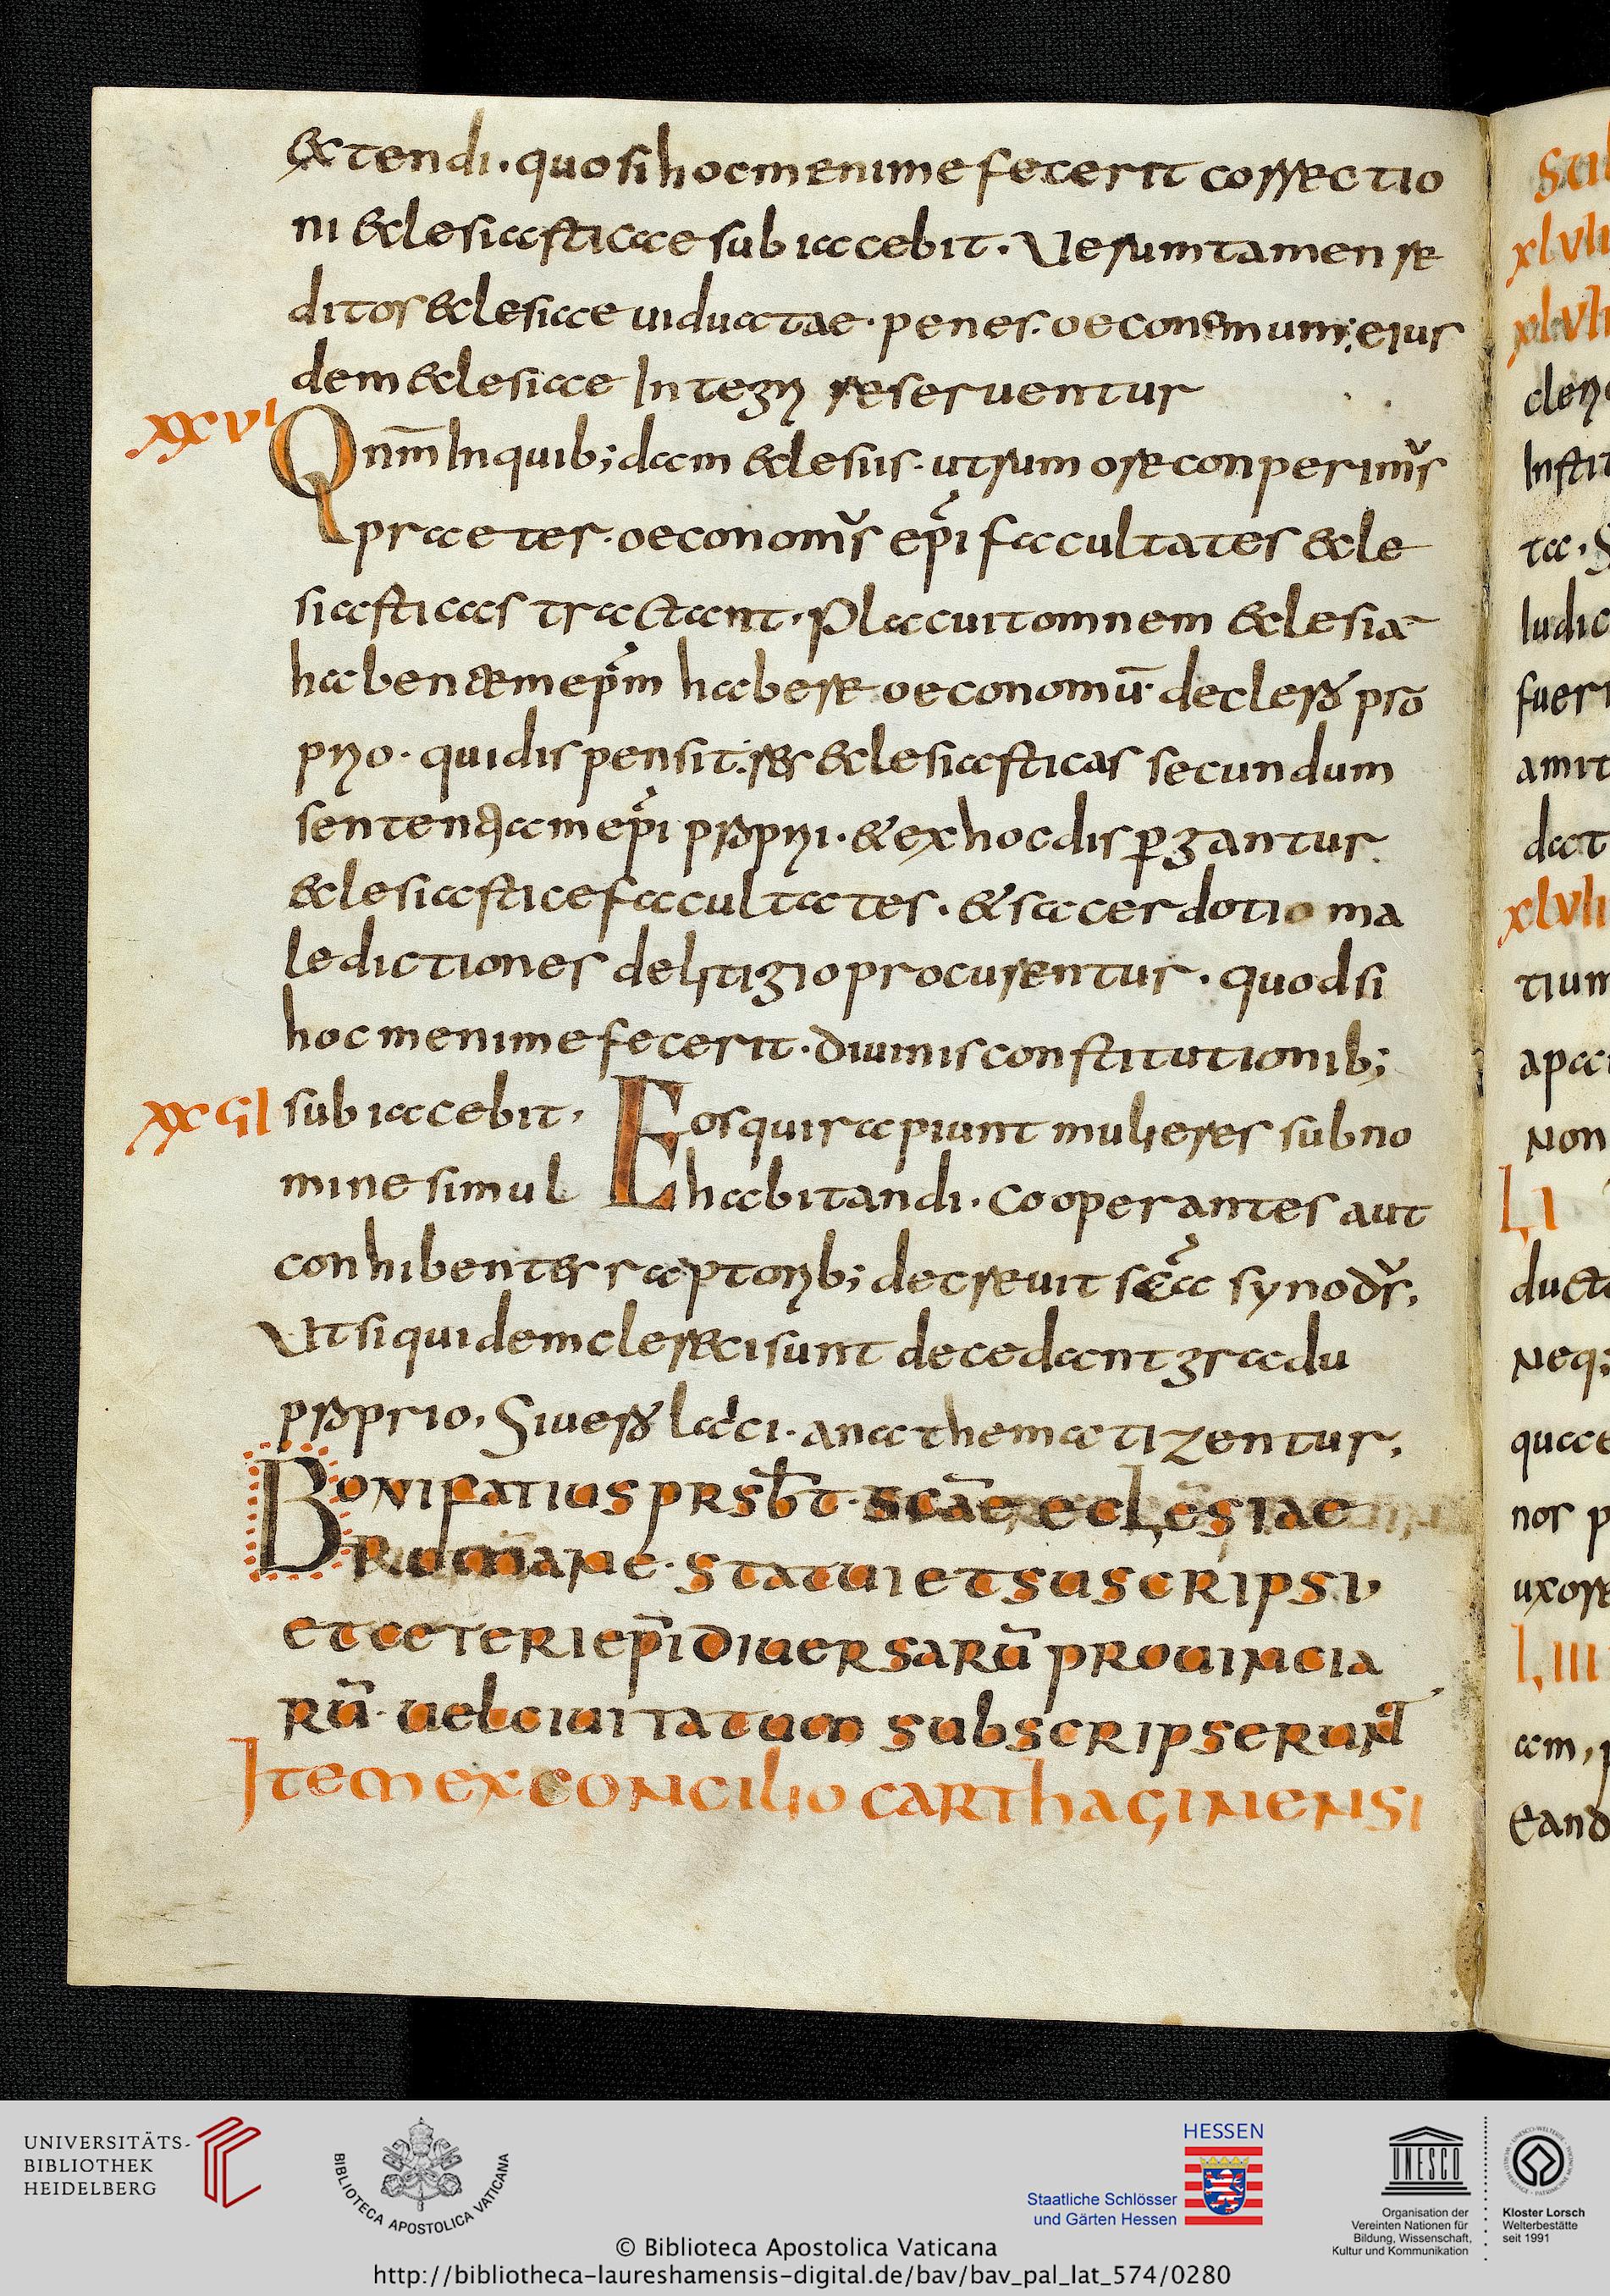 extendi. quo si hoc menime fecerit correctio
ni eclesiasticae subiacebit. Uerumtamen re
ditos eclesiae uiduatae. penes. oeconomum; eius
dem eclesiae Integri reseruentur
xxvi Qnm̄ In quib; dam eclesiis. utrum ore conperimus
praeter. oeconomus ep̄i facultates ecle
siasticas tractant. Placuit omnem eclesiā
habentem ep̄m habere oeconomū. de clero pro
prio. qui dispensit. res eclesiasticas secundum
sententiam ep̄i proprii. et ex hoc disꝑgantur
eclesiastice facultates. et sacerdotio ma
ledictiones delitigio procurentur. quod si
hoc menime fecerit. diuinis constitutionib;
xxvii subiacebit. Eos qui rapiunt mulieres sub no
mine simul habitandi. cooperantes aut
conhibentes raptorib; decreuit sc̄a synodus.
Ut si quidem clereci sunt decedant gradu
proprio, Si uero laici. anathematizentur.
Bonifatius prsbt. scāe eclēsiae
Romane. statui et suscripsi,
et ceteri ep̄i diuersarū prouincia
rū. uel ciuitatum subscripserunt
Item ex concilio carthaginensi
xlvii
cleri
Instit
ta. S
Iudic
fueri
amit
dat
xlviii
tium
apa
Non
LI
ducta
Neq;
quae
nos p
uxore
LIII
am, p
Eand
UNIVERSITÄTS-
BIBLIOTHEK
HEIDELBERG
BIBLIOTECA APOSTOLICA VATICANA
HESSEN
Staatliche Schlösser
und Gärten Hessen
UNESCO
Organisation der
Vereinten Nationen für
Bildung, Wissenschaft,
Kultur und Kommunikation
Kloster Lorsch
Welterbestätte
seit 1991
© Biblioteca Apostolica Vaticana
http://bibliotheca-laureshamensis-digital.de/bav/bav_pal_lat_574/0280